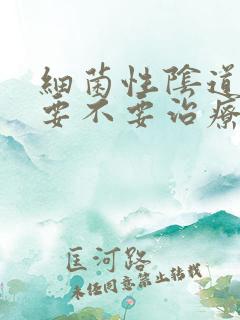 細菌性陰道
要不要治療
匡河路
未经同意禁止转载